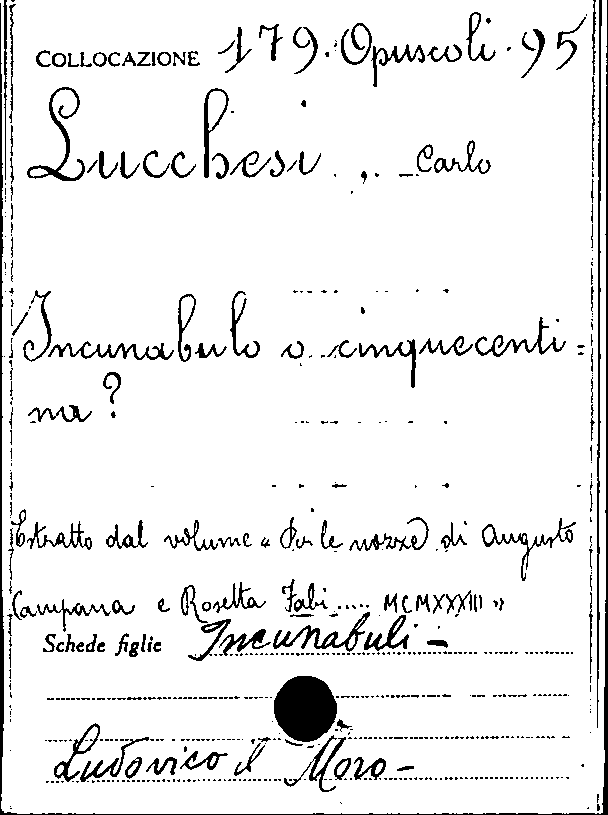 COLLOCAZIONE 179. Opuscoli. 95
Lucchesi, Carlo
Incunabulo o cinquecenti=
na?
Estratto dal volume « Per le nozze di Augusto
Campana e Rosetta Fabi ..... MCMXXXIII »
Schede figlie Incunabuli -
Ludovico il Moro -